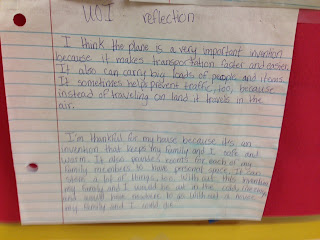 UOI reflection
I think the plane is a very important invention
because it makes transportation faster and easier.
It also can carry big loads of people and items.
It sometimes helps prevent traffic, too, because
instead of traveling on land it travels in the
air.
I'm thankful for my house because its an
invention that keeps my family and I safe and
warm. It also provides rooms for each of my
family members to have personal space. It can
store a lot of things, too. Without this invention
my family and I would be out in the cold,
and would have nowhere to go. Without a house
my family and I would